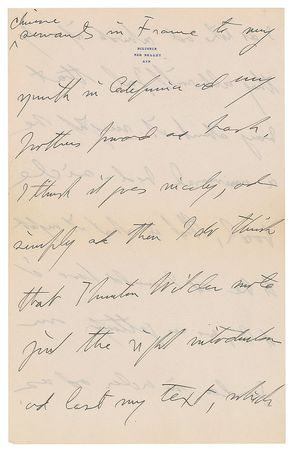 Chinese
servants in France to my
BILIGNIN
PAR BELLEY
AIN
youth in California and my
brothers
I think it goes nicely, and
simply and then I do think
that Thornton Wilder wrote
just the right introduction
and last my text, which